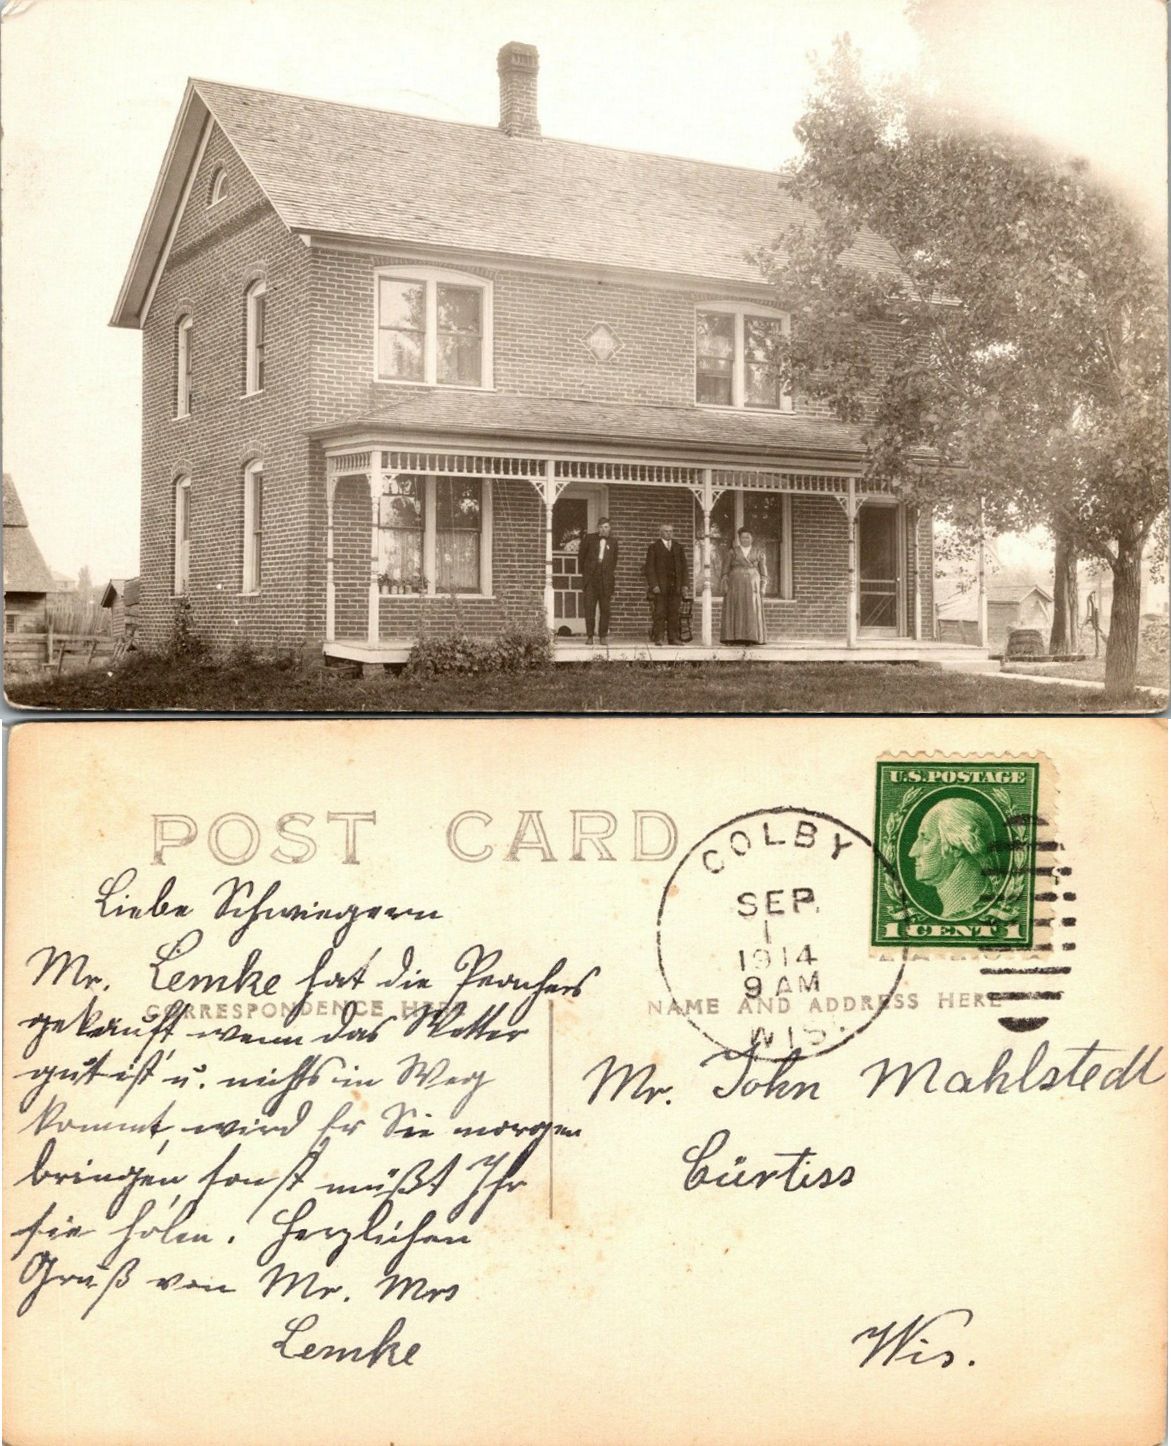 POST CARD
COLBY
SEP.
1
1914
9 AM
WIS.
U.S. POSTAGE
1 CENT 1
CORRESPONDENCE HERE
NAME AND ADDRESS HERE
Liebe Schwiegern
Mr. Lemke hat die Peaches
gekauft wenn das Wetter
gut ist u. nichts in Weg
kommt, wird Er Sie morgen
bringen, sonst müßt Ihr
sie holen. Herzlichen
Gruß von Mr. Mrs
Lemke
Mr. John Mahlstedt
Curtiss
Wis.